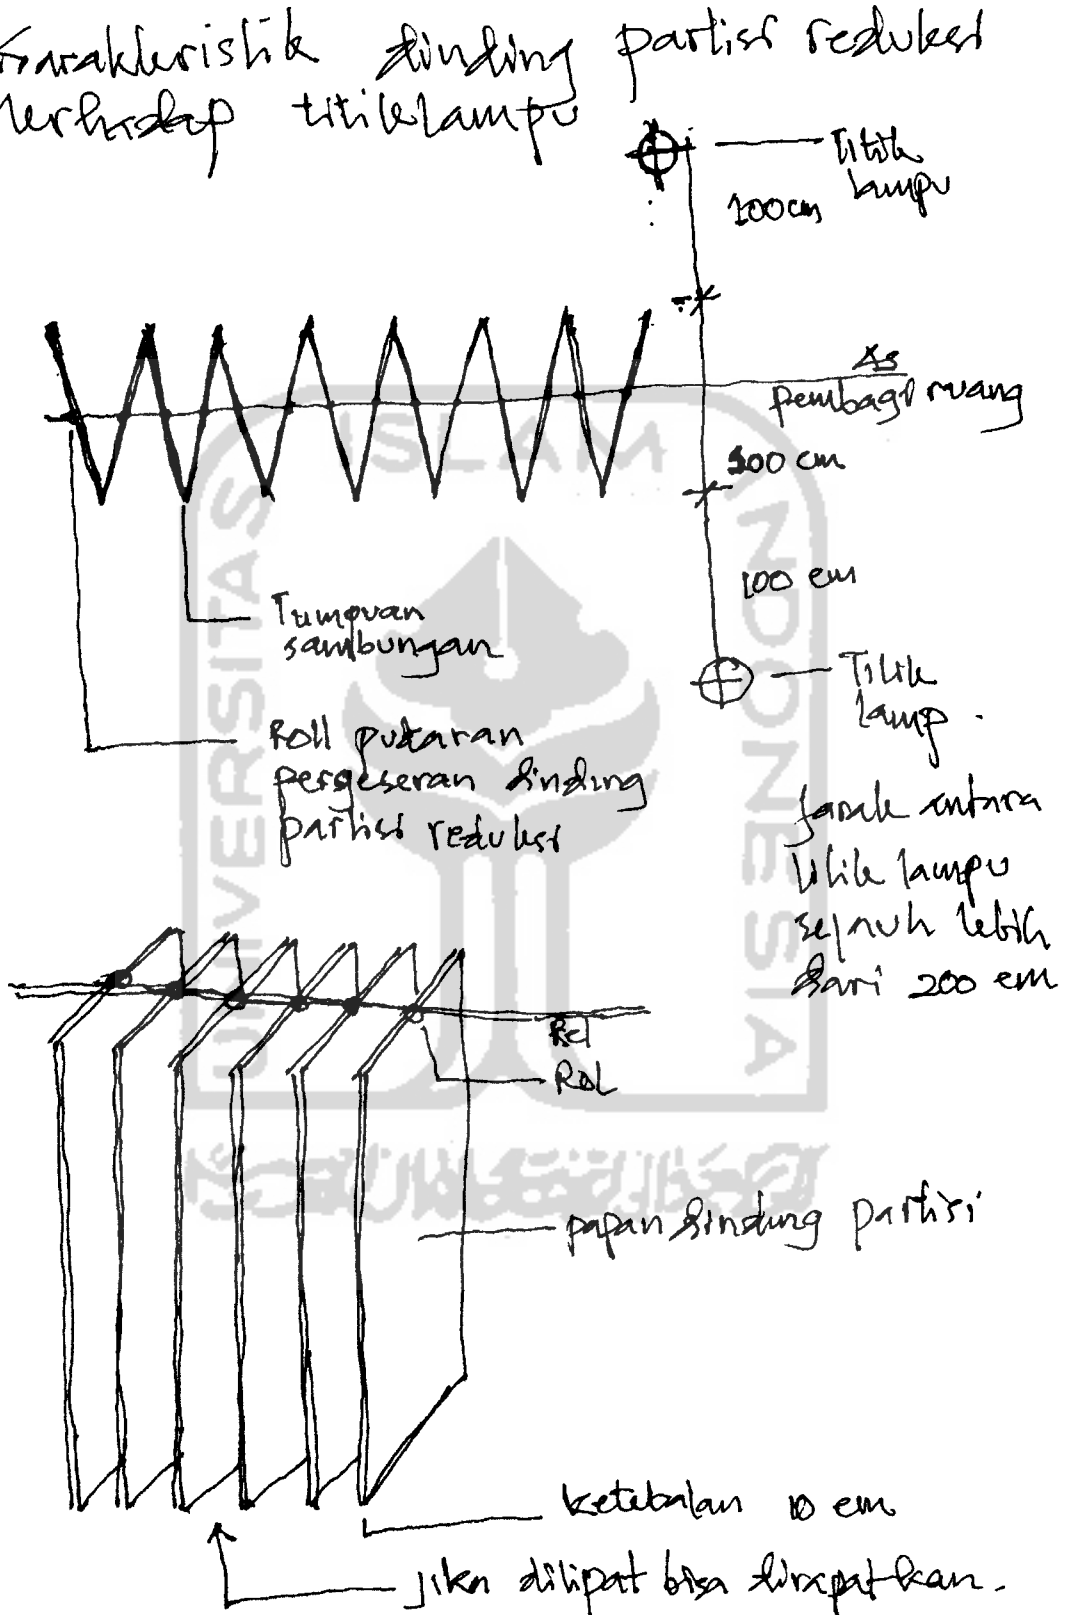 Karakteristik dinding partisi reduksi
terhadap titik lampu
Titik
lampu
100 cm
As
pembagi ruang
100 cm
100 cm
Tumpuan
sambungan
Titik
lamp.
Roll putaran
pergeseran dinding
partisi reduksi
Jarak antara
titik lampu
sejauh lebih
dari 200 cm
Rel
Rol
papan dinding partisi
ketebalan 10 cm
jika dilipat bisa dirapatkan.
UNIVERSITAS
ISLAM
INDONESIA